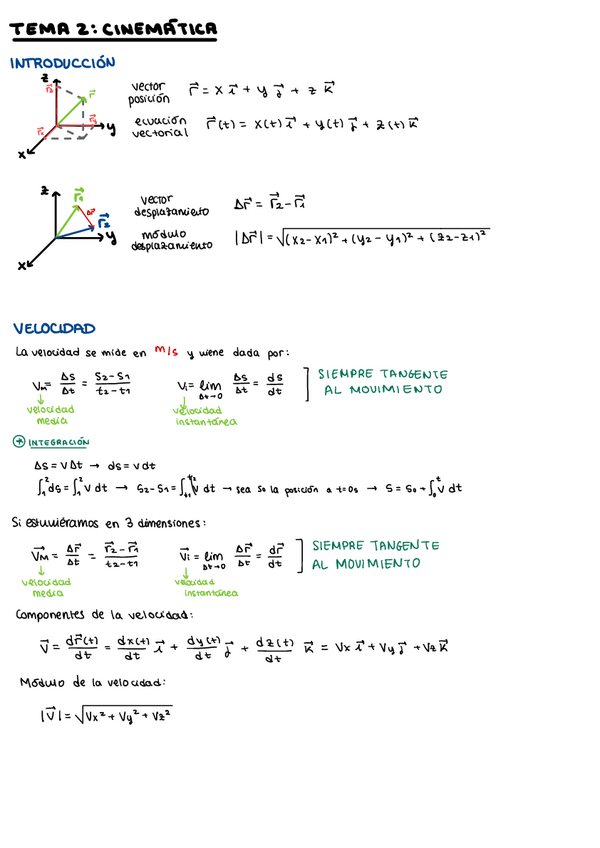 TEMA 2: CINEMÁTICA
INTRODUCCIÓN
z
y
x
r⃗
vector posición r⃗ = x i⃗ + y j⃗ + z k⃗
ecuación vectorial r⃗(t) = x(t) i⃗ + y(t) j⃗ + z(t) k⃗
z
y
x
r⃗1
Δr⃗
r⃗2
vector desplazamiento Δr⃗ = r⃗2 - r⃗1
módulo desplazamiento |Δr⃗| = √(x2-x1)² + (y2-y1)² + (z2-z1)²
VELOCIDAD
La velocidad se mide en m/s y viene dada por:
Vm = Δs/Δt = s2-s1/t2-t1 Vi = lim Δt→0 Δs/Δt = ds/dt ] SIEMPRE TANGENTE AL MOVIMIENTO
↓ velocidad media ↓ velocidad instantánea
* INTEGRACIÓN
Δs = v Δt → ds = v dt
∫₁² ds = ∫₁² v dt → s2-s1 = ∫ v dt → sea so la posición a t=0s → s = so + ∫₀ᵗ v dt
Si estuviéramos en 3 dimensiones:
V⃗M = Δr⃗/Δt = r⃗2-r⃗1/t2-t1 V⃗i = lim Δt→0 Δr⃗/Δt = dr⃗/dt ] SIEMPRE TANGENTE AL MOVIMIENTO
↓ velocidad media ↓ velocidad instantánea
Componentes de la velocidad:
V⃗ = dr⃗(t)/dt = dx(t)/dt i⃗ + dy(t)/dt j⃗ + dz(t)/dt k⃗ = Vx i⃗ + Vy j⃗ + Vz k⃗
Módulo de la velocidad:
|V⃗| = √Vx² + Vy² + Vz²